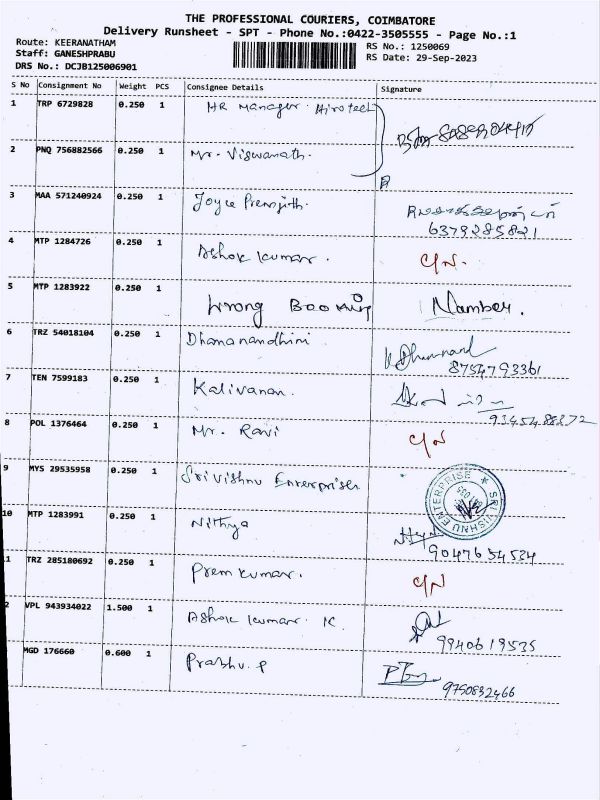 THE PROFESSIONAL COURIERS, COIMBATORE
Delivery Runsheet - SPT - Phone No.:0422-3505555 - Page No.:1
Route: KEERANATHAM
RS No.: 1250069
Staff: GANESHPRABU
RS Date: 29-Sep-2023
DRS No.: DCJB125006901
S No Consignment No Weight PCS Consignee Details Signature
1 TRP 6729828 0.250 1 HR Manager Hirotech
2 PNQ 756882566 0.250 1 Mr. Viswanath.
3 MAA 571240924 0.250 1 Joyce Premjith.
6379285821
4 MTP 1284726 0.250 1 Ashok kumar. C/N.
5 MTP 1283922 0.250 1 Wrong Booking Number.
6 TRZ 54018104 0.250 1 Dhananandhini
8754793361
7 TEN 7599183 0.250 1 Kalivanan.
9345488272
8 POL 1376464 0.250 1 Mr. Ravi C/N
9 MYS 29535958 0.250 1 Sri Vishnu Enterprises
SRI VISHNU ENTERPRISE
10 MTP 1283991 0.250 1 Nithya
9047654534
1 TRZ 285180692 0.250 1 Prem kumar. C/N
2 VPL 943934022 1.500 1 Ashok kumar. K.
9940619535
MGD 176660 0.600 1 Prabhu. P
9750832466